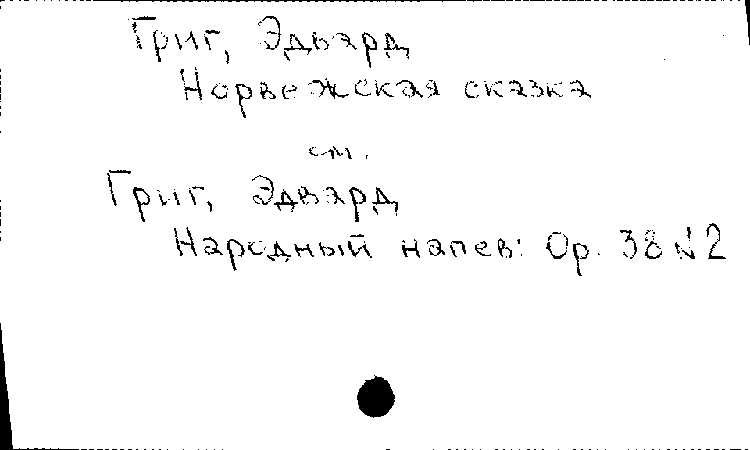 Григ, Эдвард
Норвежская сказка
см.
Григ, Эдвард
Народный напев: Op. 38 №2